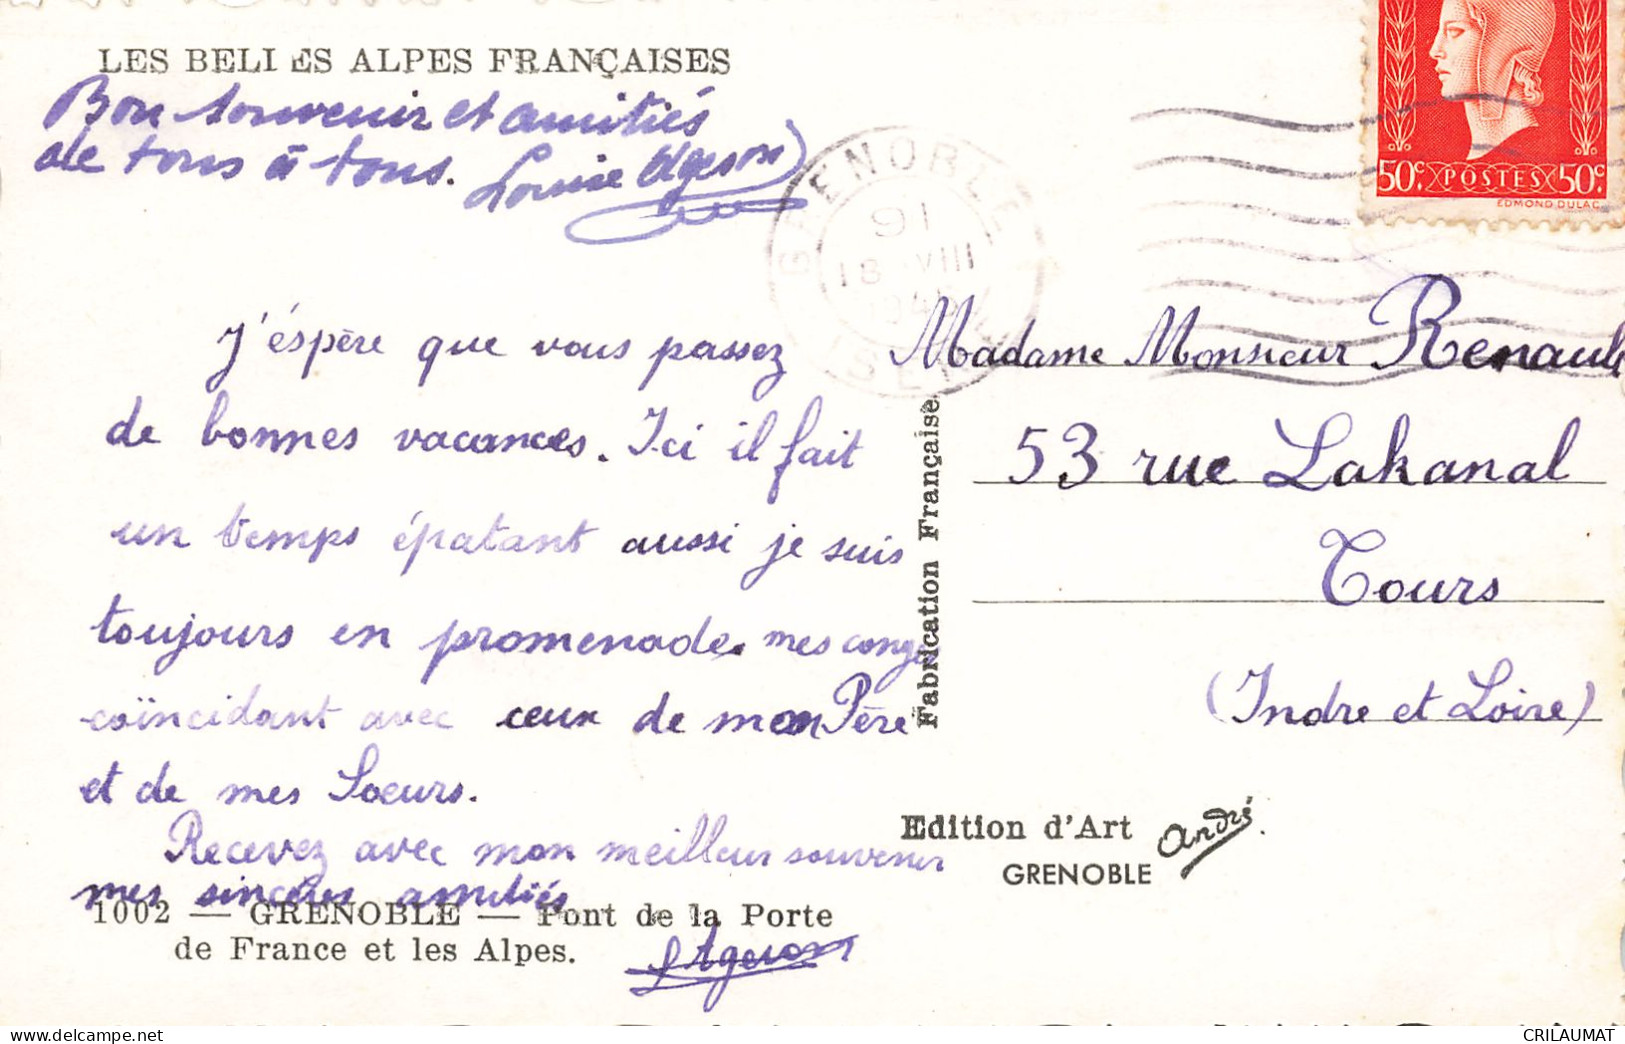 LES BELLES ALPES FRANÇAISES
Bon souvenir et amitiés
de tous à tous. Louise Ageron
J'éspère que vous passez
de bonnes vacances. Ici il fait
un temps épatant aussi je suis
toujours en promenade. mes congés
coïncidant avec ceux de mon Père
et de mes Soeurs.
Recevez avec mon meilleur souvenir
mes sincères amitiés
Ageron
1002 — GRENOBLE — Pont de la Porte
de France et les Alpes.
Fabrication Française
GRENOBLE
16
18 VIII
ISERE
50c. POSTES 50c.
EDMOND DULAC
Madame Monsieur Renault
53 rue Lakanal
Tours
(Indre et Loire)
Edition d'Art André.
GRENOBLE
CRILAUMAT